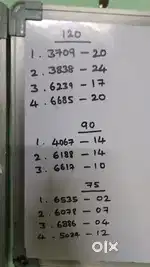 120
1. 3709 - 20
2. 3838 - 24
3. 6239 - 17
4. 6685 - 20
90
1. 4067 - 14
2. 6188 - 14
3. 6617 - 10
75
1. 6535 - 02
2. 6078 - 07
3. 6886 - 04
4. 5079 - 12
olx